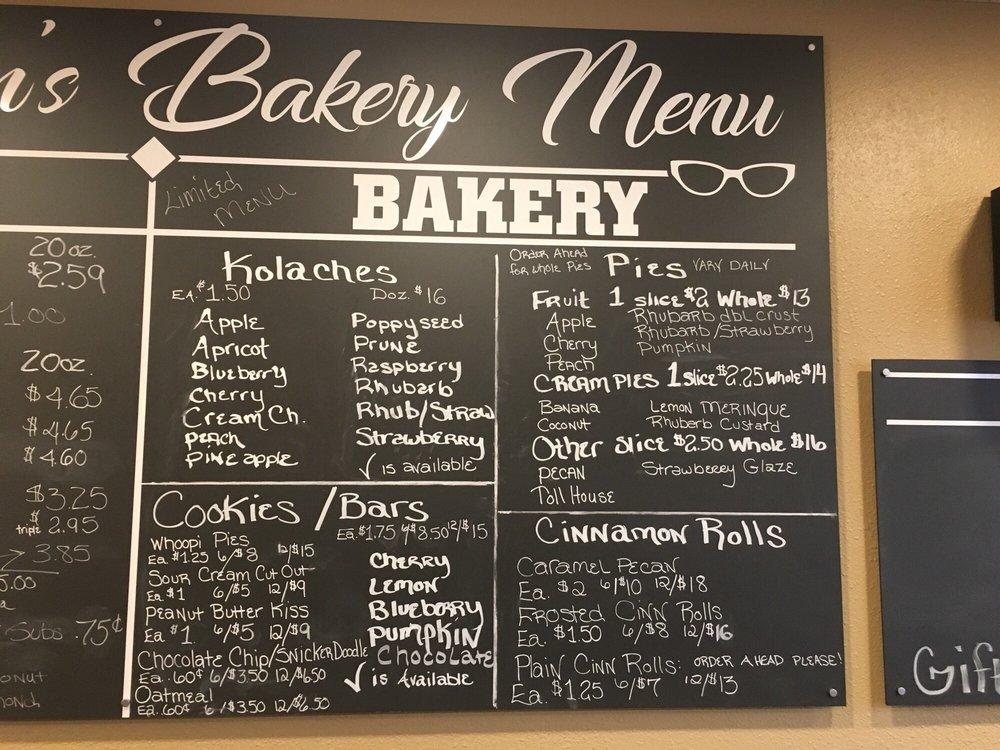 n's Bakery Menu
Limited Menu
BAKERY
20oz.
$2.59
1.00
20oz.
$4.65
$4.65
$4.60
$3.25
triple $2.95
→ 3.85
5.00
Subs .75¢
Kolaches
Ea. $1.50 Doz. $16
Apple
Apricot
Blueberry
Cherry
Cream Ch.
Peach
Pineapple
Poppyseed
Prune
Raspberry
Rhubarb
Rhub/Straw
Strawberry
✓ is available
Order Ahead for whole Pies
Pies Vary Daily
Fruit 1 slice $2 Whole $13
Apple
Cherry
Peach
Rhubarb dbl crust
Rhubarb/Strawberry
Pumpkin
Cream Pies 1 slice $2.25 Whole $14
Banana
Coconut
Lemon Meringue
Rhubarb Custard
Other Slice $2.50 Whole $16
Pecan
Toll House
Strawberry Glaze
Cookies /Bars
Ea. $1.75 6/$8.50 12/$15
Whoopi Pies
Ea. $1.25 6/$8 12/$15
Sour Cream Cut Out
Ea $1 6/$5 12/$9
Peanut Butter Kiss
Ea $1 6/$5 12/$9
Chocolate Chip/Snickerdoodle
Ea. 60¢ 6/$3.50 12/$6.50
Oatmeal
Ea. 60¢ 6/$3.50 12/$6.50
Cherry
Lemon
Blueberry
Pumpkin
Chocolate
✓ is Available
Cinnamon Rolls
Caramel Pecan
Ea. $2 6/$10 12/$18
Frosted Cinn Rolls
Ea. $1.50 6/$8 12/$16
Plain Cinn Rolls: Order Ahead Please!
Ea. $1.25 6/$7 12/$13
Gift